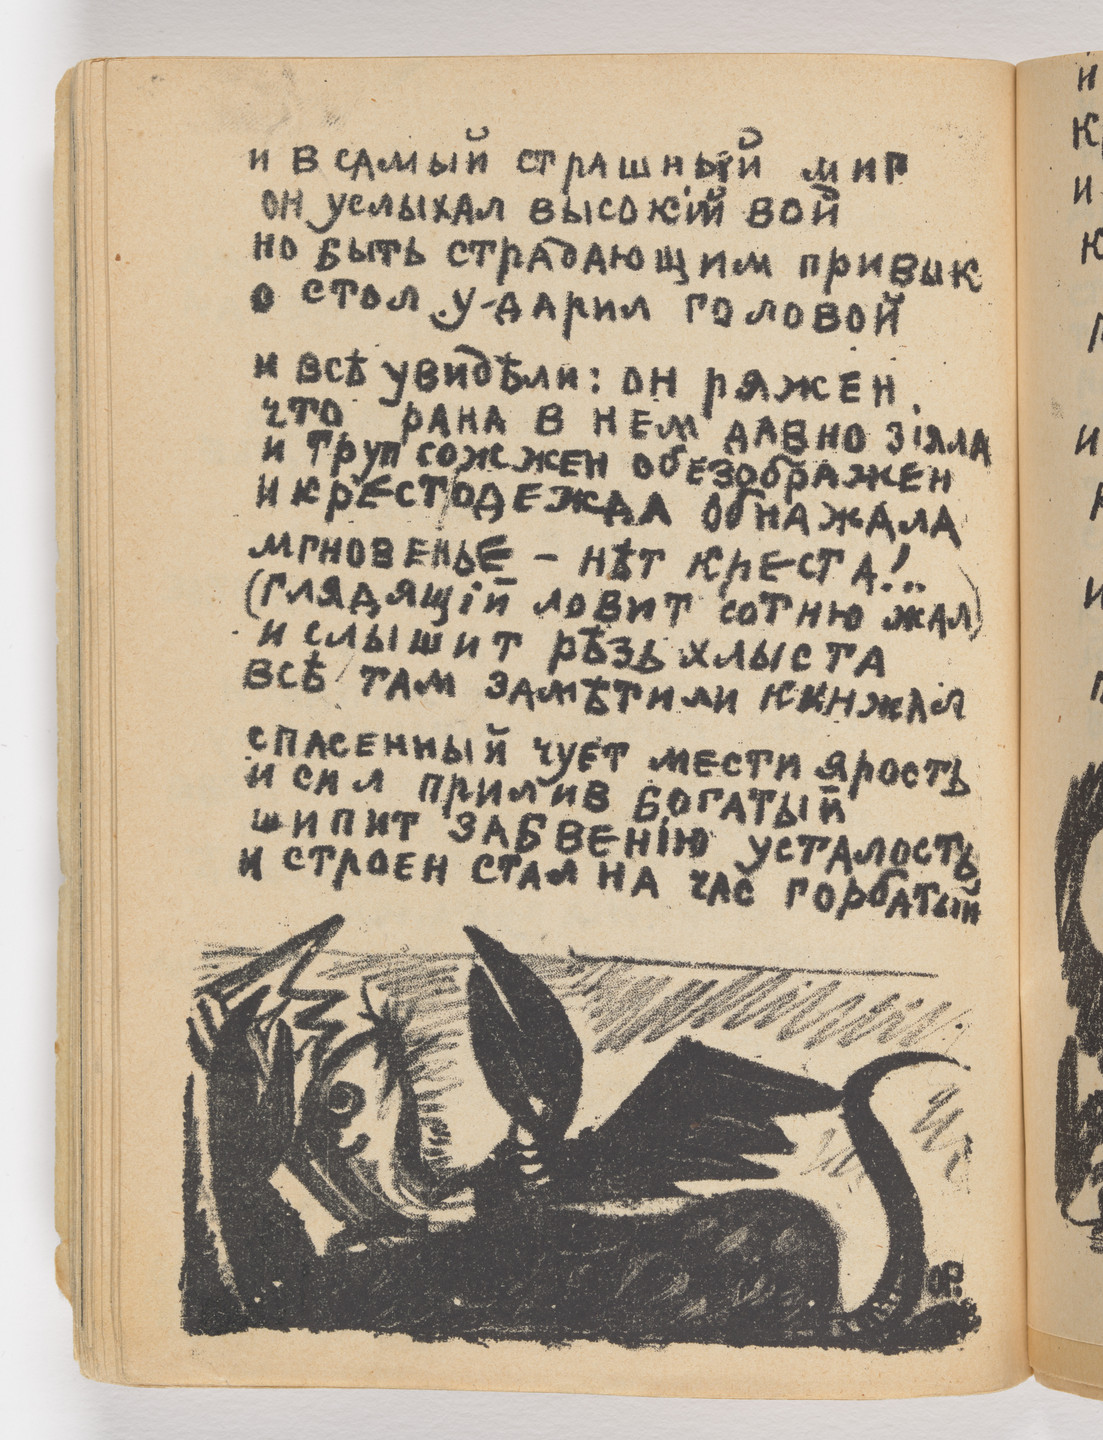 и в самый страшный миг
он услыхал высокiй вой
но быть страдающим привык
о стол у-дарил головой
и всѣ увидѣли: он ряжен.
что рана в нем давно зіяла
и труп сожжен обезображен
и крест одежда обнажала
мгновенье – нѣт креста!..
(глядящій ловит сотню жал)
и слышит рѣзь хлыста
всѣ там замѣтили кинжал
спасенный чует мести ярость
и сил прилив богатый
шипит забвенію усталость
и строен стал на час горбатый
ОР.